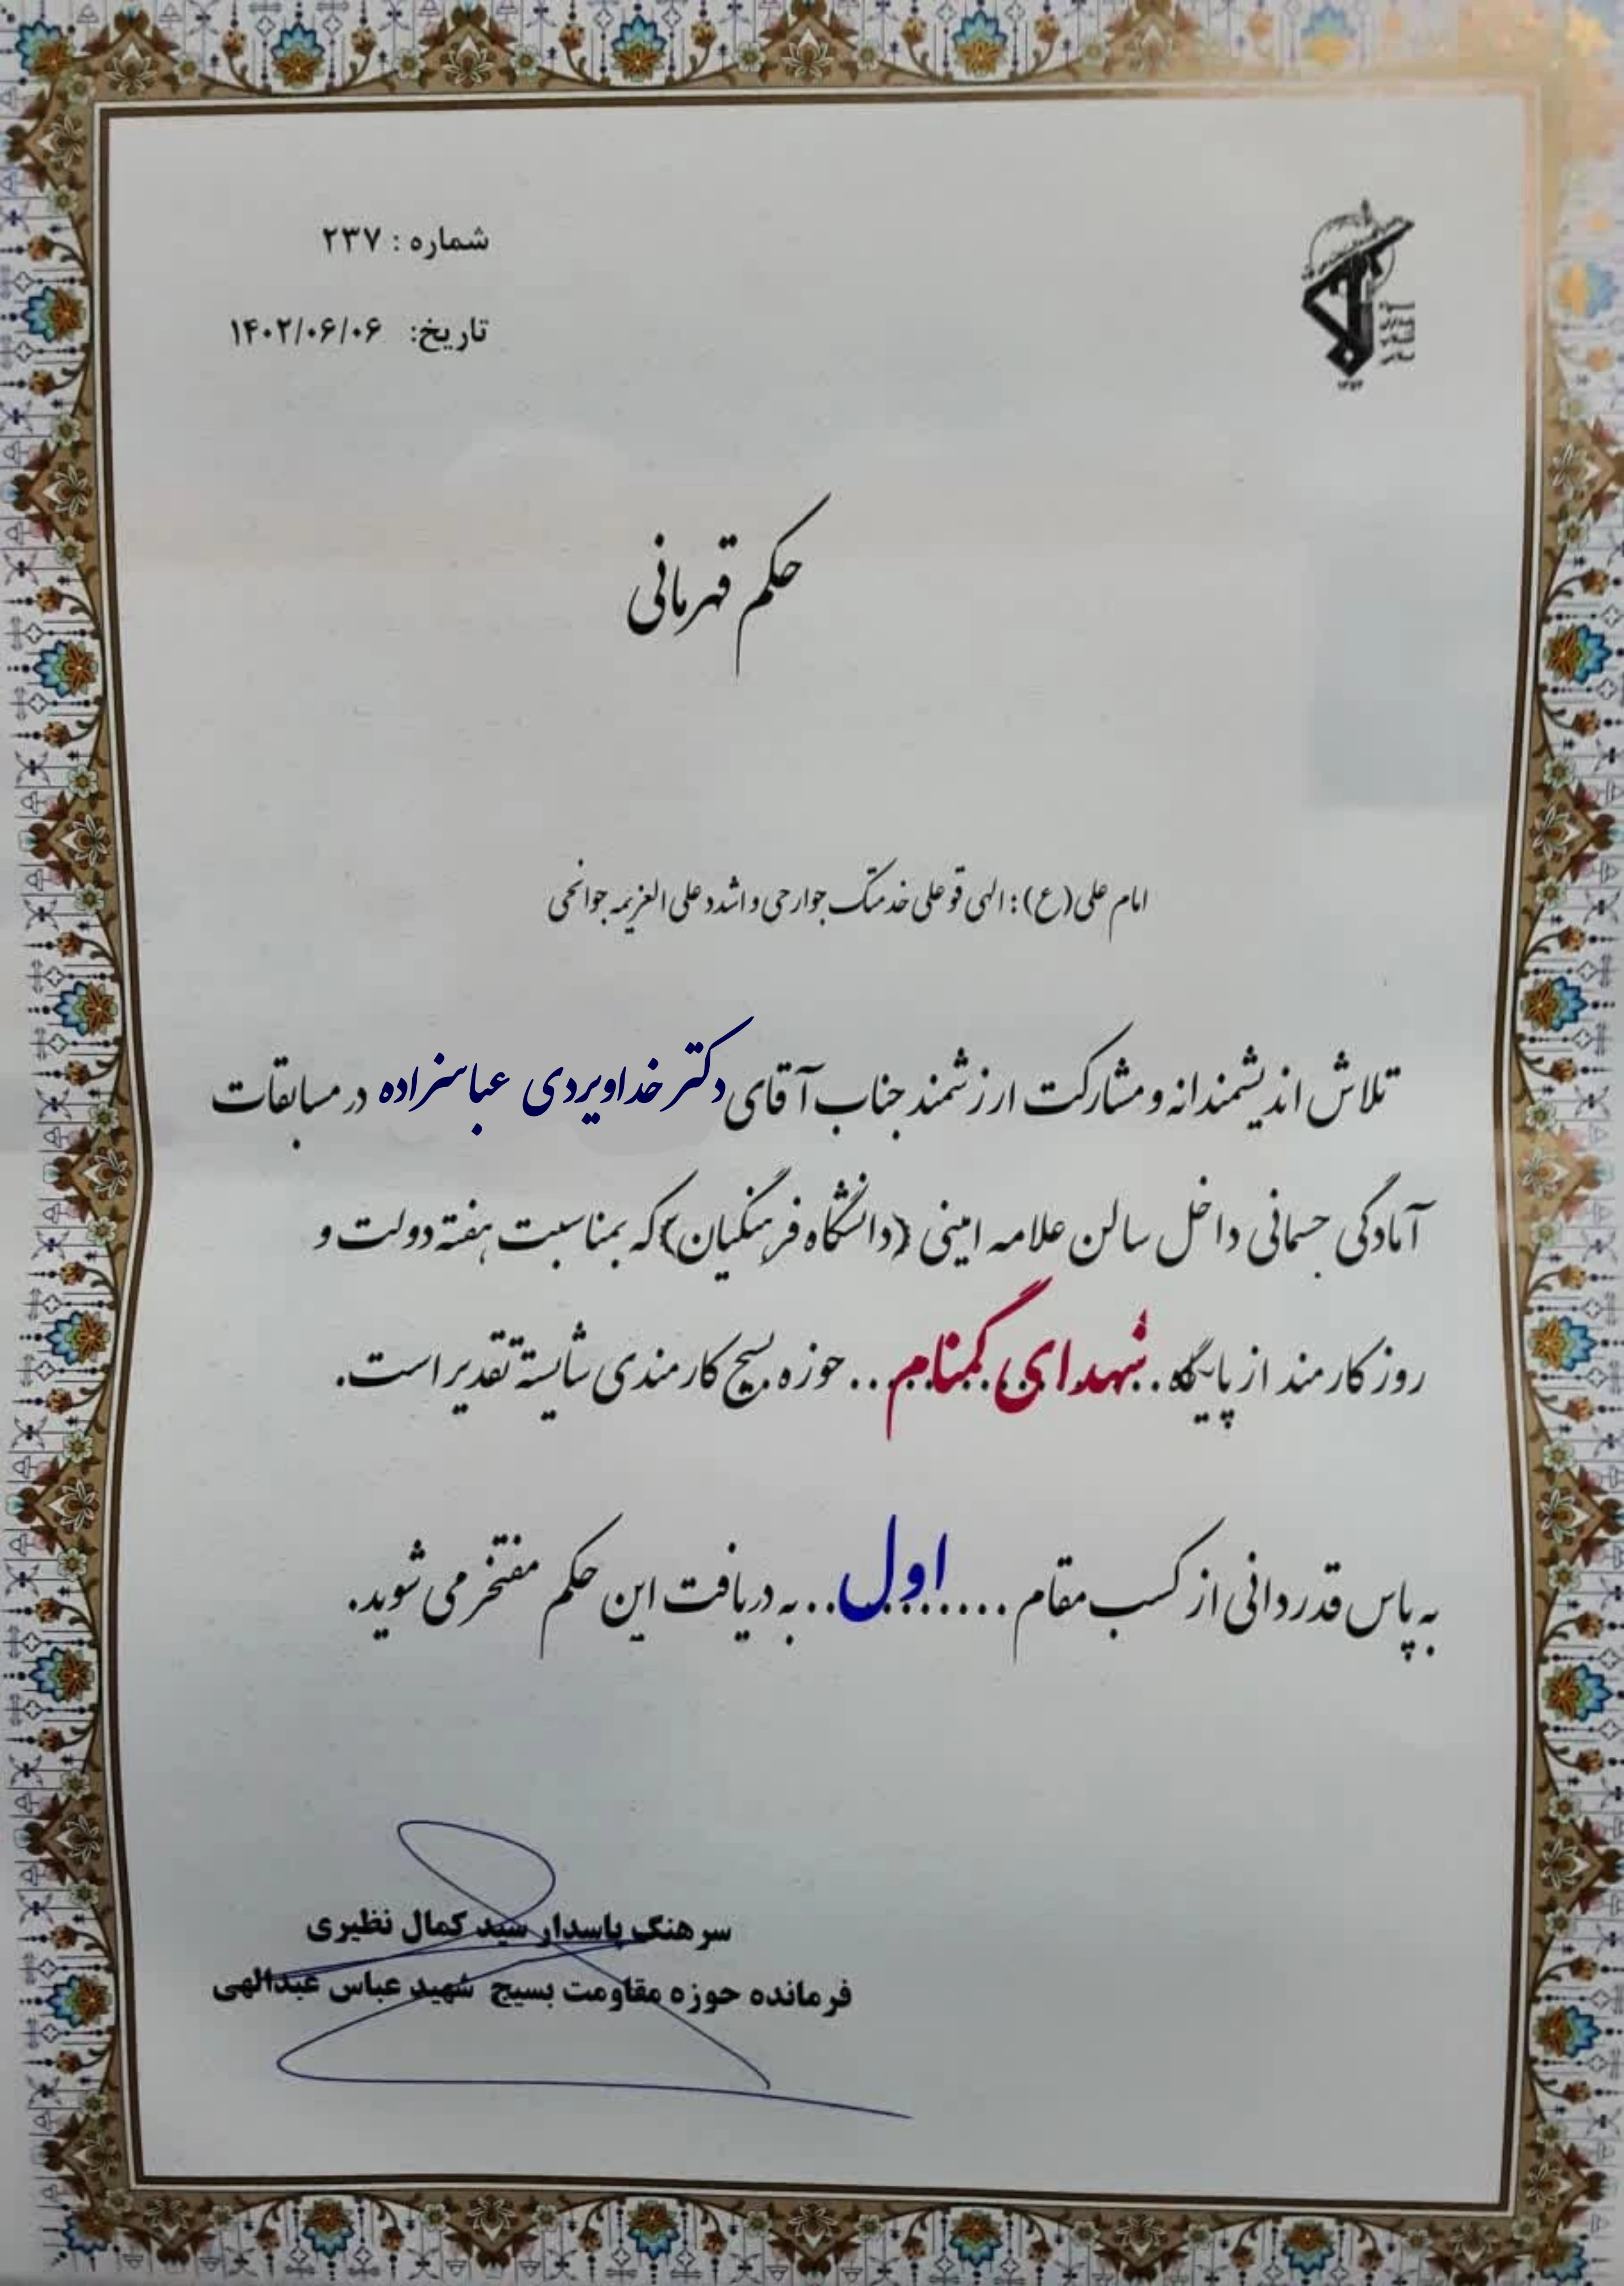 شماره : ۲۳۷
تاریخ: ۱۴۰۲/۰۶/۰۶
حکم قهرمانی
امام علی (ع) : الهی قو علی خدمتک جوارحی و اشدد علی العزیمه جوانحی
تلاش اندیشمندانه و مشارکت ارزشمند جناب آقای دکتر خداویردی عباسزاده در مسابقات
آمادگی جسمانی داخل سالن علامه امینی (دانشگاه فرهنگیان) که بمناسبت هفته دولت و
روز کارمند از پایگاه .. شهدای گمنام ... حوزه بسیج کارمندی شایسته تقدیر است.
به پاس قدردانی از کسب مقام ..... اول .. به دریافت این حکم مفتخر می شوید.
سرهنگ پاسدار سید کمال نظیری
فرمانده حوزه مقاومت بسیج شهید عباس عبدالهی